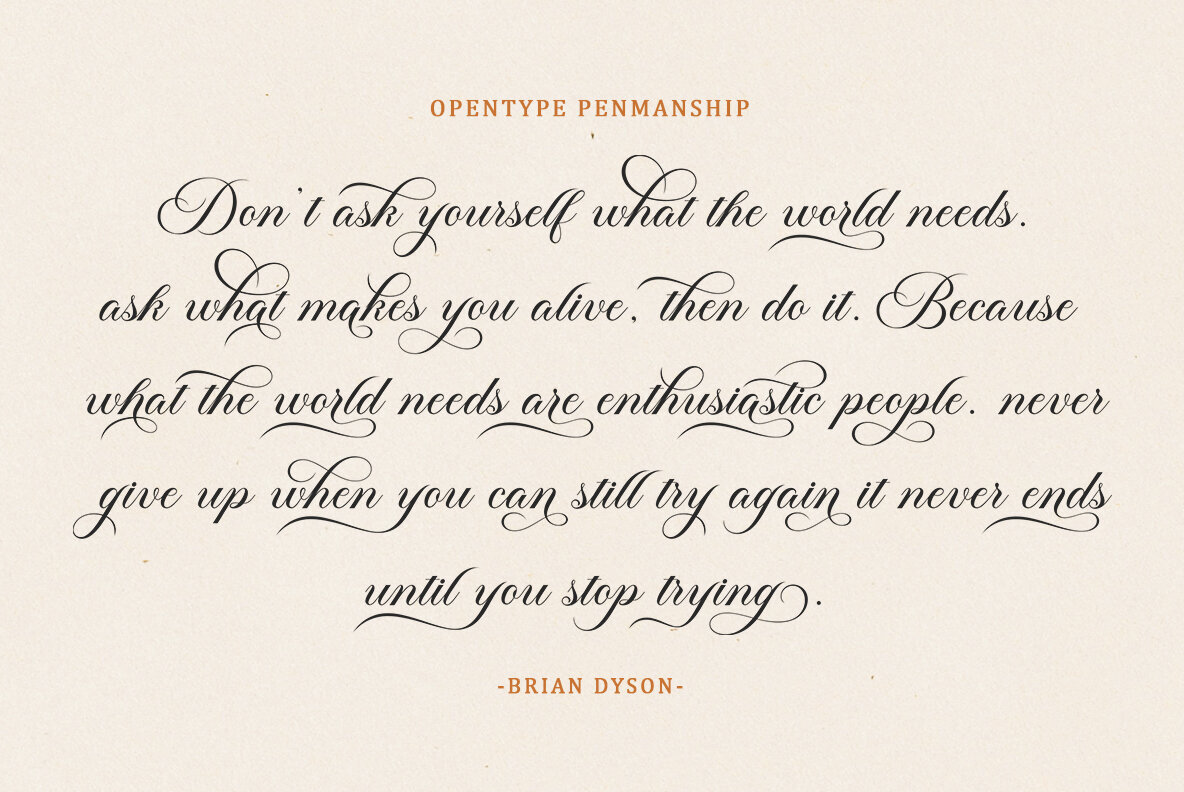 OPENTYPE PENMANSHIP
Don't ask yourself what the world needs.
ask what makes you alive, then do it. Because
what the world needs are enthusiastic people. never
give up when you can still try again it never ends
until you stop trying.
-BRIAN DYSON-